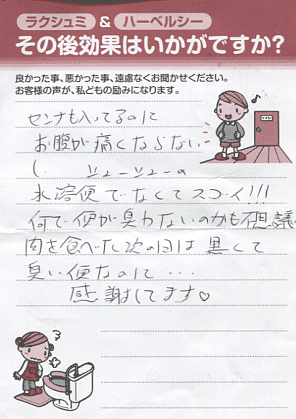 ラクシュミ & ハーベルシー
その後効果はいかがですか?
良かった事、悪かった事、遠慮なくお聞かせください。
お客様の声が、私どもの励みになります。
センナも入ってるのに
お腹が痛くならない
し、シューシューの
水溶便でなくてスゴーイ!!!
何で便が臭わないのかも不思議
肉を食べた次の日は黒くて
臭い便なのに・・・
感謝してます♡